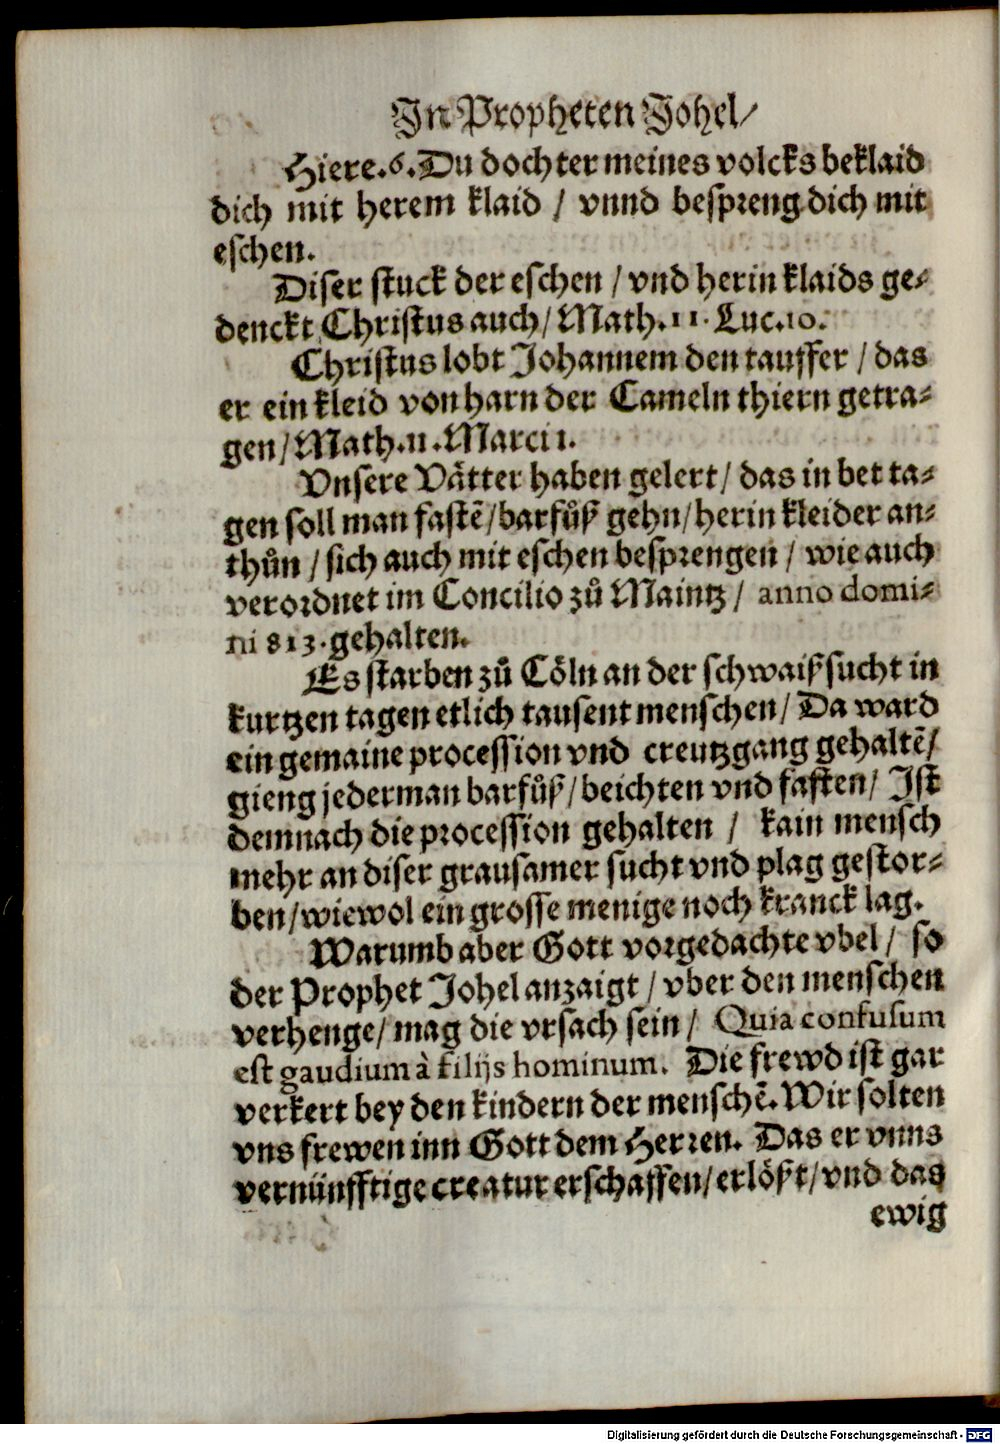 In Propheten Johel/
Hiere.6.Du dochter meines volcks beklaid
dich mit herem klaid / vnnd bespreng dich mit
eschen.
Diser stuck der eschen / vnd herin klaids ge-
denckt Christus auch/ Math.11. Luc.10.
Christus lobt Johannem den tauffer / das
er ein kleid von harn der Cameln thiern getra-
gen/ Math.11. Marci 1.
Vnsere Våtter haben gelert/ das in bet ta-
gen soll man fastẽ/barfůß gehn/herin kleider an-
thůn / sich auch mit eschen besprengen / wie auch
verordnet im Concilio zů Maintz / anno domi-
ni 813. gehalten.
Es starben zů Cöln an der schwaißsucht in
kurtzen tagen etlich tausent menschen/ Da ward
ein gemaine procession vnd creutzgang gehaltẽ/
gieng jederman barfůß/beichten vnd fasten/ Ist
demnach die procession gehalten / kain mensch
mehr an diser grausamer sucht vnd plag gestor-
ben/wiewol ein grosse menige noch kranck lag.
Warumb aber Gott vorgedachte vbel / so
der Prophet Johel anzaigt / vber den menschen
verhenge/ mag die vrsach sein / Quia confusum
est gaudium à filijs hominum. Die frewd ist gar
verkert bey den kindern der menschẽ. Wir solten
vns frewen inn Gott dem Herren. Das er vnns
vernünfftige creatur erschaffen/erlößt/vnd das
ewig
Digitalisierung gefördert durch die Deutsche Forschungsgemeinschaft - DFG